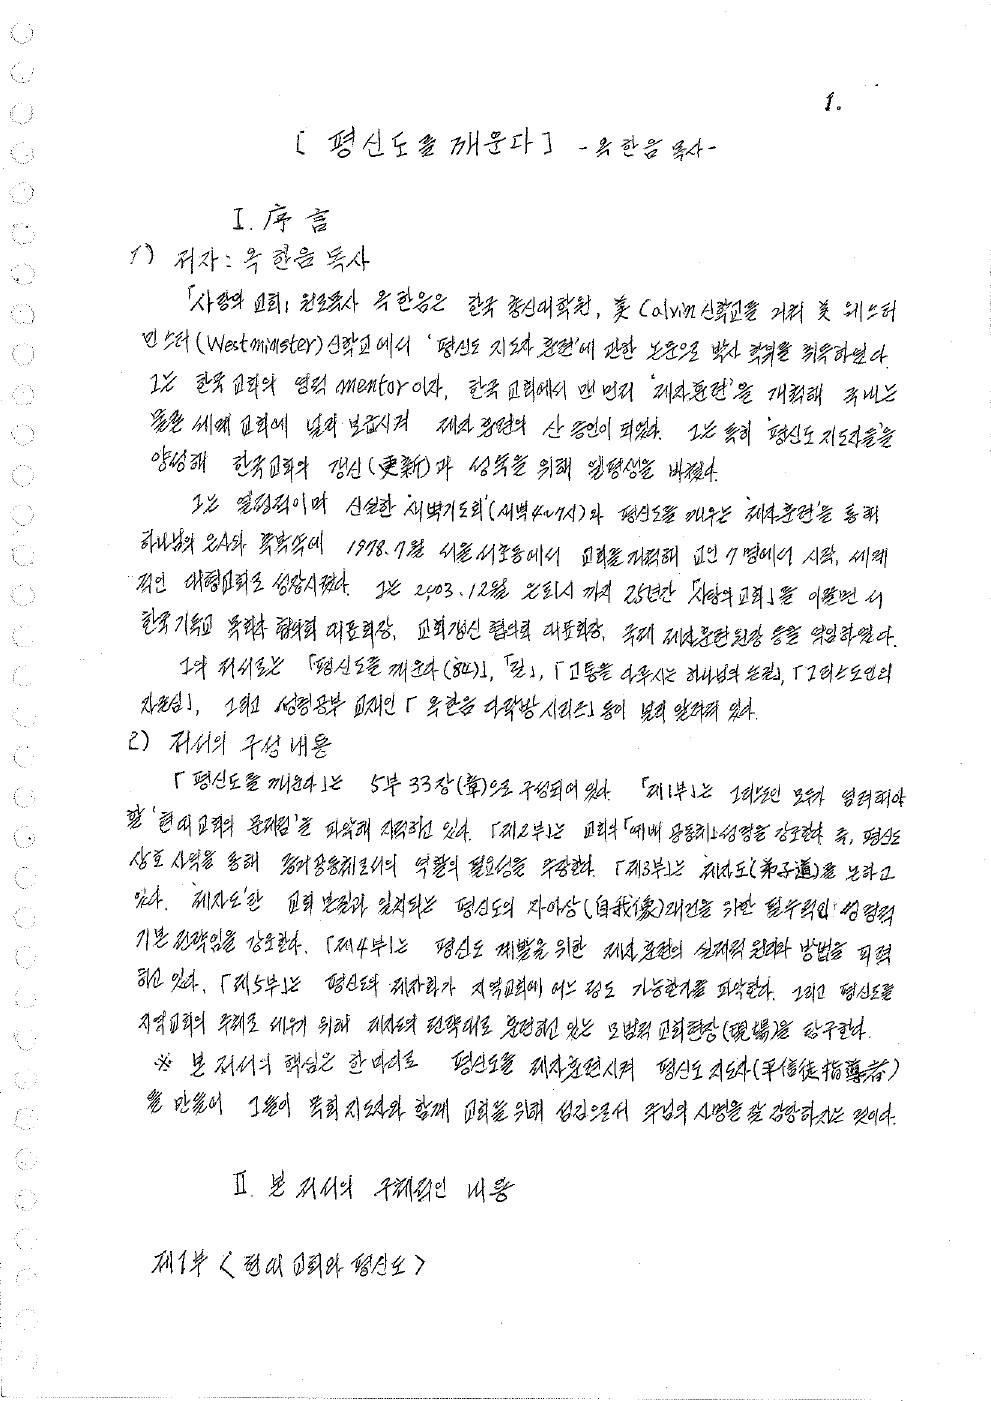 1.
[ 평신도를 깨운다 ] - 옥한음 목사 -
I. 序言
1) 저자 : 옥한음 목사
「사랑의 교회」 원로목사 옥한음은 한국 총신대학원, 美 Calvin 신학교를 거쳐 美 웨스터
민스터(Westminster)신학교에서 '평신도 지도자 훈련'에 관한 논문으로 박사 학위를 취득하였다.
그는 한국교회의 영적 mentor이자, 한국 교회에서 맨 먼저 '제자훈련'을 개척해 국내는
물론 세계 교회에 널리 보급시켜 제자 훈련의 산 증인이 되었다. 그는 특히 '평신도 지도자들'을
양성해 한국교회의 갱신(更新)과 성숙을 위해 일평생을 바쳤다.
그는 열정적이며 신실한 '새벽기도회'(새벽4~7시)와 평신도를 깨우는 '제자훈련'을 통해
하나님의 은사와 축복속에 1978. 7월 서울 서초동에서 교회를 개척해 교인 7명에서 시작, 세계
적인 대형교회로 성장시켰다. 그는 2003. 12월 은퇴시 까지 25년간 「사랑의 교회」를 이끌면서
한국기독교 목회자 협의회 대표회장, 교회갱신 협의회 대표회장, 국제 제자훈련원장 등을 역임하였다.
그의 저서로는 「평신도를 깨운다」, 「길」, 「고통을 다루시는 하나님의 손길」, 「그리스도인의
자존심」, 그리고 성경공부 교재인 「옥한음 다락방 시리즈」 등이 널리 알려져 있다.
2) 저서의 구성 내용
「평신도를 깨운다」는 5부 33장(章)으로 구성되어 있다. 「제1부」는 그리스도인 모두가 염려해야
할 '현대교회의 문제점'을 파악해 지적하고 있다. 「제2부」는 교회의 「예배 공동체」성격을 강조한다. 즉, 평신도
상호 사역을 통해 증거공동체로서의 역할의 필요성을 주장한다. 「제3부」는 '제자도'(弟子道)를 논하고
있다. '제자도'란 교회 본질과 일치되는 평신도의 자아상(自我像)재건을 위한 필수적인 성경적
기본 전략임을 강조한다. 「제4부」는 평신도 계발을 위한 제자 훈련의 실제적 원리와 방법을 피력
하고 있다. 「제5부」는 평신도의 제자화가 지역교회에 어느 정도 가능한가를 파악한다. 그리고 평신도를
지역교회의 주체로 세우기 위해 제자도의 전략대로 훈련하고 있는 모범적 교회현장(現場)을 탐구한다.
※ 본 저서의 핵심은 한마디로 평신도를 제자훈련시켜 평신도 지도자(平信徒指導者)
를 만들어 그들이 목회 지도자와 함께 교회를 위해 섬김으로서 주님의 사명을 잘 감당하자는 것이다.
II. 본 저서의 구체적인 내용
제1부 < 현대 교회와 평신도 >